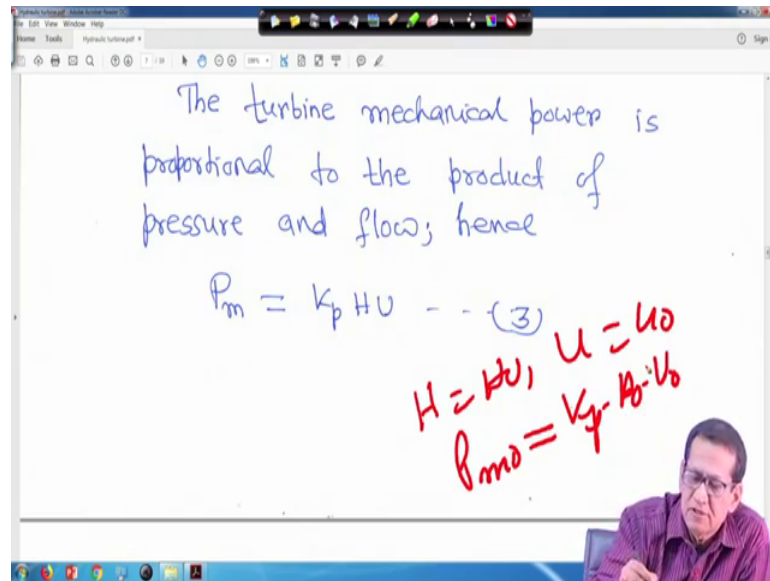 Hydraulic turbine.pdf - Adobe Acrobat Reader DC
File Edit View Window Help
Home Tools Hydraulic turbine.pdf × Sign
The turbine mechanical power is
proportional to the product of
pressure and flow; hence
Pm = Kp HU -- (3)
H = H0, U = U0
Pm0 = Kp · H0 · U0